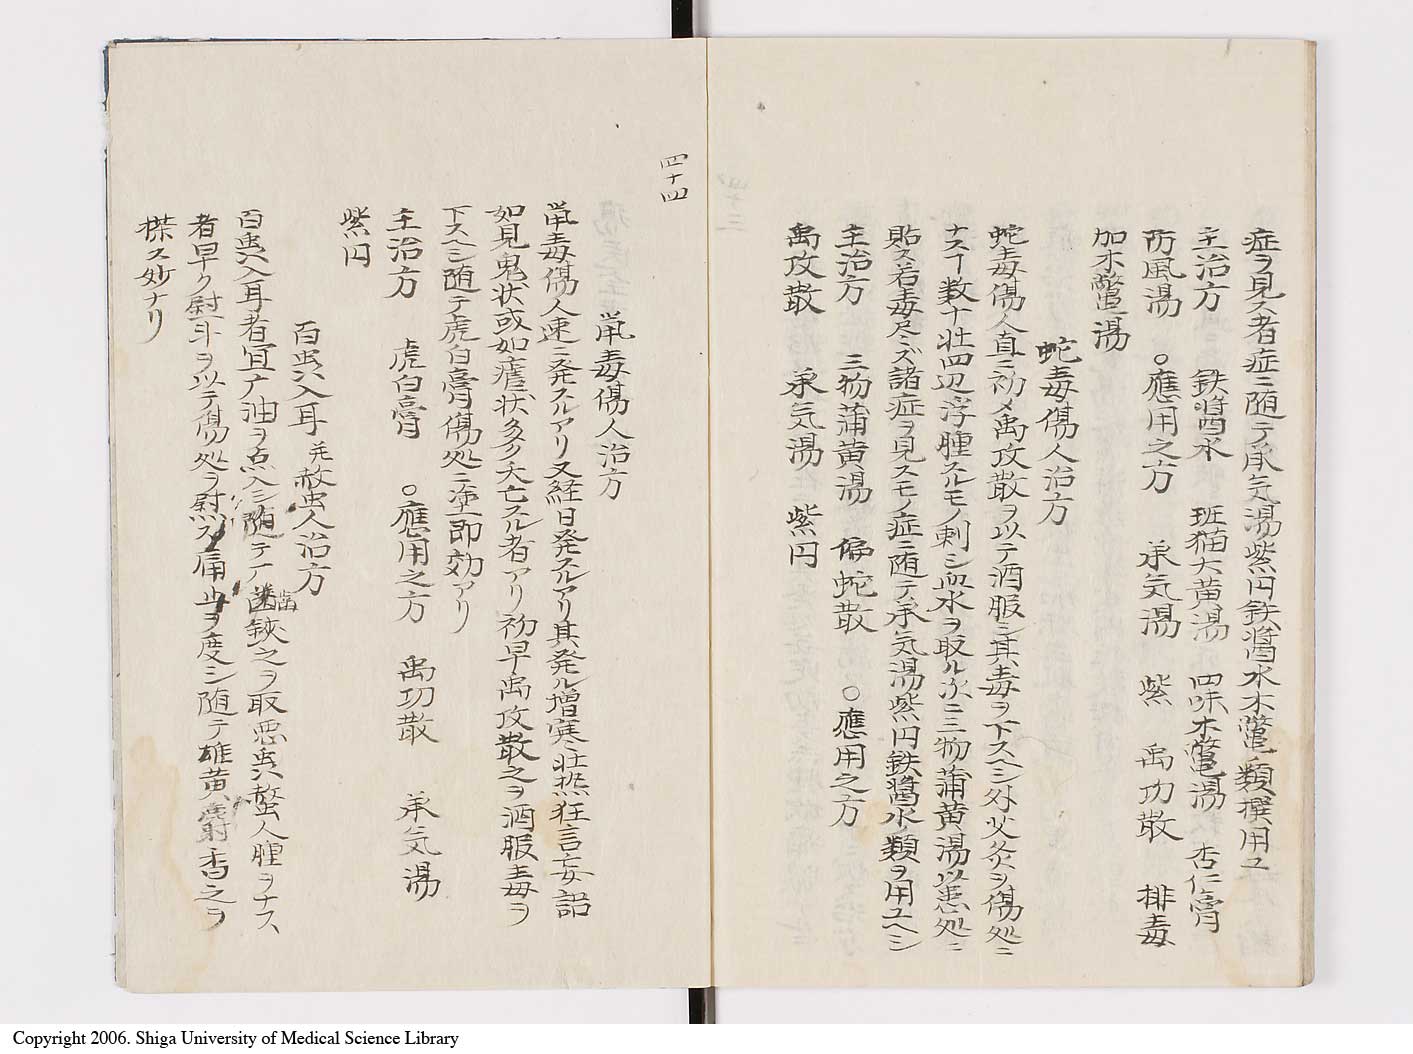 症ヲ見ス者症ニ随テ承気湯紫円鉄醤水木鼈ノ類撰用ユ
主治方　鉄醤水　班猫大黄湯　四味木鼈湯　杏仁膏
防風湯　○應用之方　承気湯　紫　禹功散　排毒
加木鼈湯
蛇毒傷人治方
蛇毒傷人直ニ初メ禹攻散ヲ以テ酒服シ其毒ヲ下スヘシ外艾灸ヲ傷処ニ
ナスヿ数十壮四辺浮腫スルモノ刺シ血水ヲ取ル次ニ三物蒲黄湯以患処ニ
貼ス若毒尽ミズ諸症ヲ見スモノ症ニ随テ承気湯紫円鉄醤水ノ類ヲ用ユヘシ
主治方　三物蒲黄湯　偏蛇散　○應用之方
禹攻散　承気湯　紫円
四十四
鼡毒傷人治方
鼡毒傷人速ニ発スルアリ又経日発スルアリ其発ル増寒壮熱狂言妄語
如見鬼状或如瘧状多ク夭亡スル者アリ初早禹攻散之ヲ酒服毒ヲ
下スヘシ随テ虎白膏傷処ニ塗即効アリ
主治方　虎白膏　○應用之方　禹功散　承気湯
紫円
百虫入耳并螫虫人治方
百虫入耳者冝广油ヲ点入シ随テ齒鋏之ヲ取悪虫螫人腫ヲナス
者早ク尉斗ヲ以テ傷処ヲ熨ス痛止ヲ度シ随テ雄黄麝香之ヲ
搽ス妙ナリ
Copyright 2006. Shiga University of Medical Science Library